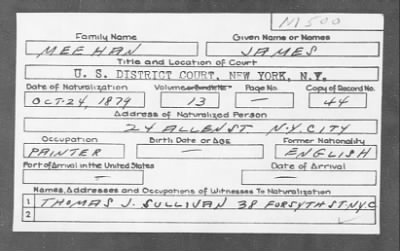 M500
Family Name Given Name or Names
MEEHAN JAMES
Title and Location of Court
U. S. DISTRICT COURT, NEW YORK, N.Y.
Date of Naturalization Volume or Bundle No. Page No. Copy of Record No.
OCT-24, 1879 13 — 44
Address of Naturalized Person
24 ALLEN ST N.Y. CITY
Occupation Birth Date or Age Former Nationality
PAINTER — ENGLISH
Port of Arrival in the United States Date of Arrival
— —
Names, Addresses and Occupations of Witnesses To Naturalization
1 THOMAS J. SULLIVAN 38 FORSYTH ST. N.Y.C
2